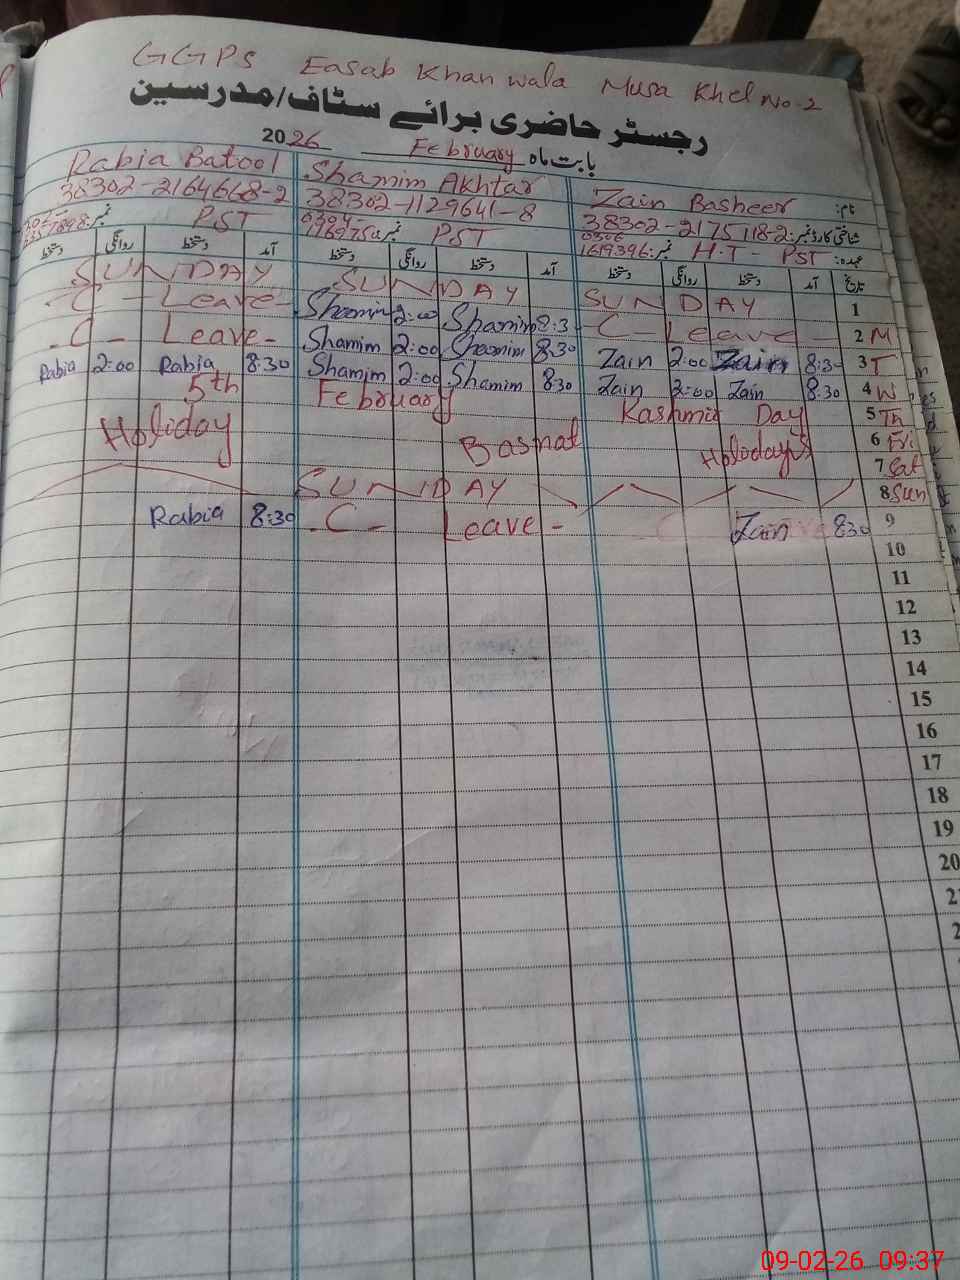 GGPS Easab Khan wala Musa Khel No-2
رجسٹر حاضری برائے سٹاف/مدرسین
بابت ماہ February 2026
نام: Zain Basheer Shamim Akhtar Rabia Batool
شناختی کارڈ نمبر: 38302-2175118-2 38302-1129641-8 38302-2164668-2
عہدہ: H.T - PST نمبر: 1619396 PST نمبر PST نمبر
تاریخ آمد دستخط روانگی دستخط آمد دستخط روانگی دستخط آمد دستخط روانگی دستخط
SUNDAY SUNDAY SUNDAY 1
-C- Leave- Shamim 2:00 Shamim 8:3 C- Leave- 2 M
-C- Leave- Shamim 2:00 Shamim 8:30 Zain 2:00 Zain 8:30 3 T
Rabia 2:00 Rabia 8:30 Shamim 2:00 Shamim 8:30 Zain 2:00 Zain 8:30 4 W
5th February Kashmir Day 5 Th
Holiday Basnat Holidays 6 Fri
7 Sat
SUNDAY 8 Sun
Rabia 8:30 -C- Leave- Zain 8:30 9
10
11
12
13
14
15
16
17
18
19
20
09-02-26 09:37